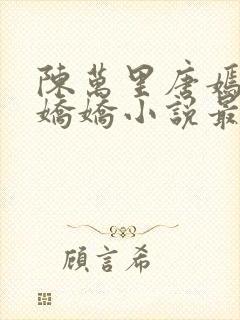 陳萬里唐嫣
嬌嬌小說最
顧言希